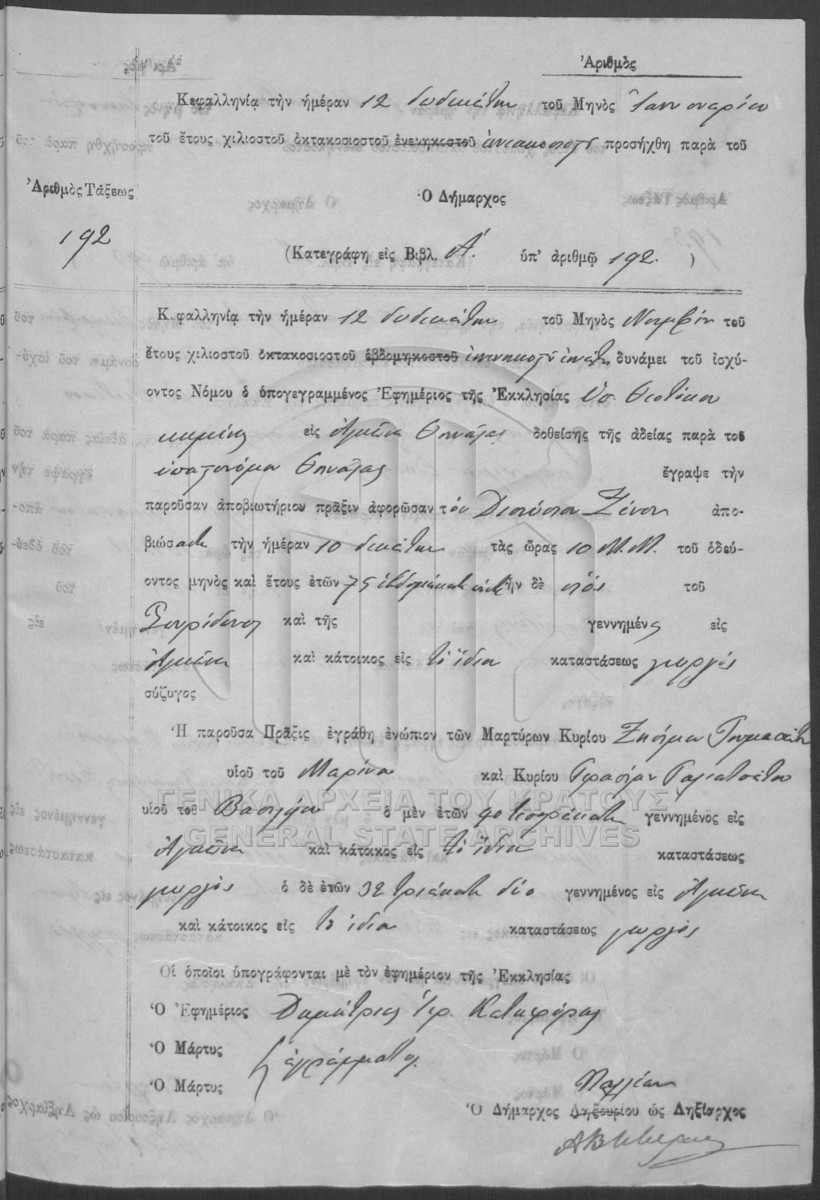 Ἀριθμὸς
Κεφαλληνίᾳ τὴν ἡμέραν 12 δωδεκάτην τοῦ Μηνὸς Ἰανουαρίου
τοῦ ἔτους χιλιοστοῦ ὀκτακοσιοστοῦ ἐνενηκοστοῦ προσήχθη παρὰ τοῦ
Ἀριθμὸς Τάξεως
Ὁ Δήμαρχος
192
(Κατεγράφη εἰς Βιβλ. Α΄. ὑπ' ἀριθμῷ 192. )
Κεφαλληνίᾳ τὴν ἡμέραν 12 δωδεκάτην τοῦ Μηνὸς Νοεμβρίου τοῦ
ἔτους χιλιοστοῦ ὀκτακοσιοστοῦ ἑβδομηκοστοῦ ἐνενηκοστοῦ ἐνάτου δυνάμει τοῦ ἰσχύ-
οντος Νόμου ὁ ὑπογεγραμμένος Ἐφημέριος τῆς Ἐκκλησίας Ὑπ. Θεοτόκου
εἰς δοθείσης τῆς ἀδείας παρὰ τοῦ
ἔγραψε τὴν
παροῦσαν ἀποβιωτήριον πρᾶξιν ἀφορῶσαν τὸν Διονύσιον Ξένον ἀπο-
βιώσαντα τὴν ἡμέραν 10 δεκάτην τὰς ὥρας 10 Μ.Μ. τοῦ ὁδεύ-
οντος μηνὸς καὶ ἔτους ἐτῶν 75 ἑβδομήκοντα πέντε ἦν δὲ υἱὸς τοῦ
Σπυρίδωνος καὶ τῆς γεννημένος εἰς
καὶ κάτοικος εἰς τὸ ἴδιον καταστάσεως γεωργὸς
σύζυγος
Ἡ παροῦσα Πρᾶξις ἐγράθη ἐνώπιον τῶν Μαρτύρων Κυρίου Ζησίμου
υἱοῦ τοῦ Μαρίνου καὶ Κυρίου Γερασίμου Γαλιατσάτου
υἱοῦ τοῦ Βασιλείου ὁ μὲν ἐτῶν 40 τεσσαράκοντα γεννημένος εἰς
καὶ κάτοικος εἰς τὸ ἴδιον καταστάσεως
γεωργὸς ὁ δὲ ἐτῶν 32 τριάκοντα δύο γεννημένος εἰς
καὶ κάτοικος εἰς τὸ ἴδιον καταστάσεως γεωργὸς
Οἱ ὁποῖοι ὑπογράφονται μὲ τὸν ἐφημέριον τῆς Ἐκκλησίας
Ὁ Ἐφημέριος Δημήτριος Ἱερ. Καταφόρος
Ὁ Μάρτυς
ἀγράμματοι
Ὁ Μάρτυς
Παλλέων
Ὁ Δήμαρχος Ληξουρίου ὡς Ληξίαρχος
ΓΕΝΙΚΑ ΑΡΧΕΙΑ ΤΟΥ ΚΡΑΤΟΥΣ
GENERAL STATE ARCHIVES